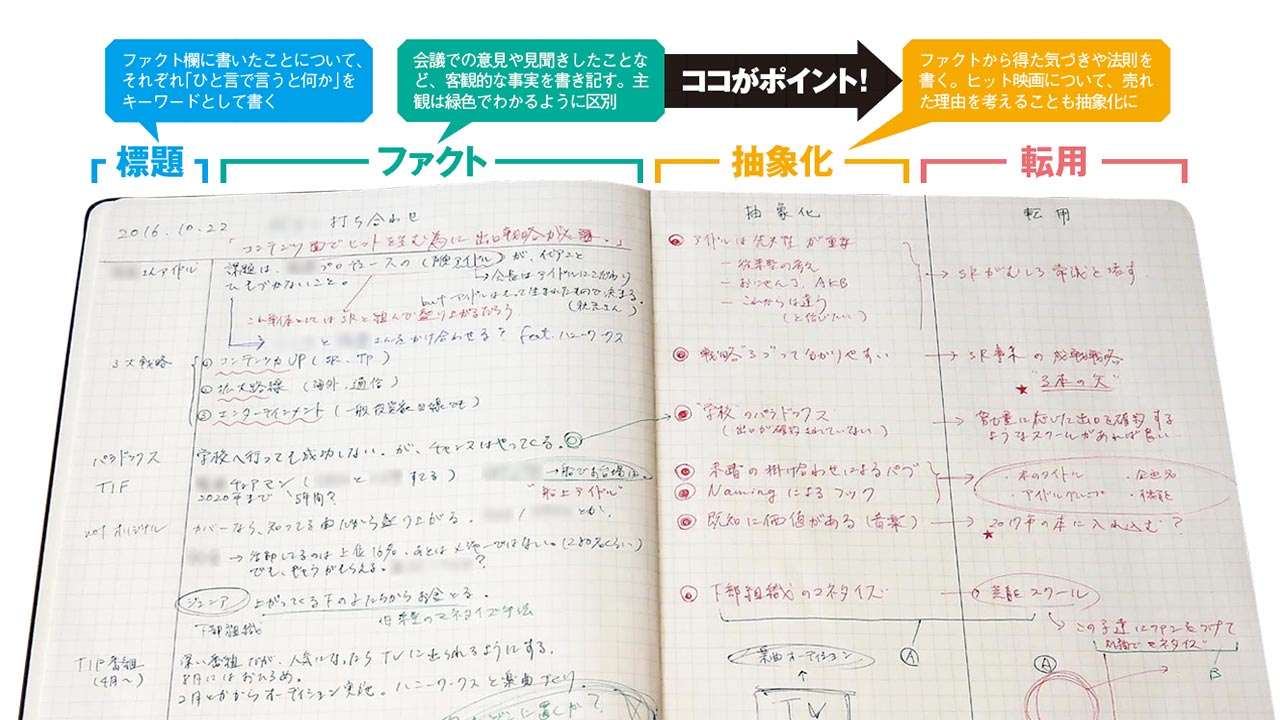 ファクト欄に書いたことについて、
それぞれ「ひと言で言うと何か」を
キーワードとして書く
会議での意見や見聞きしたことな
ど、客観的な事実を書き記す。主
観は緑色でわかるように区別
ココがポイント!
ファクトから得た気づきや法則を
書く。ヒット映画について、売れ
た理由を考えることも抽象化に
標題
ファクト
抽象化
転用
2016.10.22 打ち合わせ
「コンテンツ面でヒットを生む為に出口戦略が
さんアイドル
課題は、 プロデュースの
ひもづかないこと。
会長はアイドルにこだわり
but アイドルはもって生まれたもので決まる。
(秋元さん)
SRと組んで盛り上がるだろう
さんをかけ合わせる? feat. ハニーワークス
3大戦略
① コンテンツ力UP
② 拡大路線 (海外、通信)
③ エンターテインメント (一般投資家目線でも)
パラドックス
学校へ行っても成功しない。が、チャンスはやってくる。
TIF
チェアマン
2020年まで 5年間?
"船上アイドル"
not オリジナル
カバーなら、知ってる曲だから盛り上がる。 とか。
→ 活動してるのは上位16名、あとはメジャーではない。
でも、
ジュニア 上がってくる下の子たちからお金とる。
下部組織
マネタイズ手法
TIF番組
(4月〜)
深い番組だが、人気になったらTVに出られるようにする。
8月にはおひろめ。
2月とかからオーディション実施。ハニーワークスと楽曲づくり。
どこに置くか?
抽象化
アイドルは先天性が重要
ー 従来型の考え
ー おにゃん子、AKB
ー これからは違う
(と信じたい)
戦略"3つ"って分かりやすい
"学校"のパラドックス
(出口が確約されていない)
未踏の掛け合わせによるパブ
Namingによるフック
既知に価値がある (音楽)
下部組織のマネタイズ
楽曲オーディション
TV
A
転用
→ SRがむしろ常識を壊す
→ SR事業の成長戦略
★ "3本の矢"
に応じた出口を確約する
ようなスクールがあれば良い
・本のタイトル ・企画名
・アイドルグループ ・機能
→ 2017年の本に入れ込む?
★
芸能スクール
この子達にファンをつけて
マネタイズ
A
B